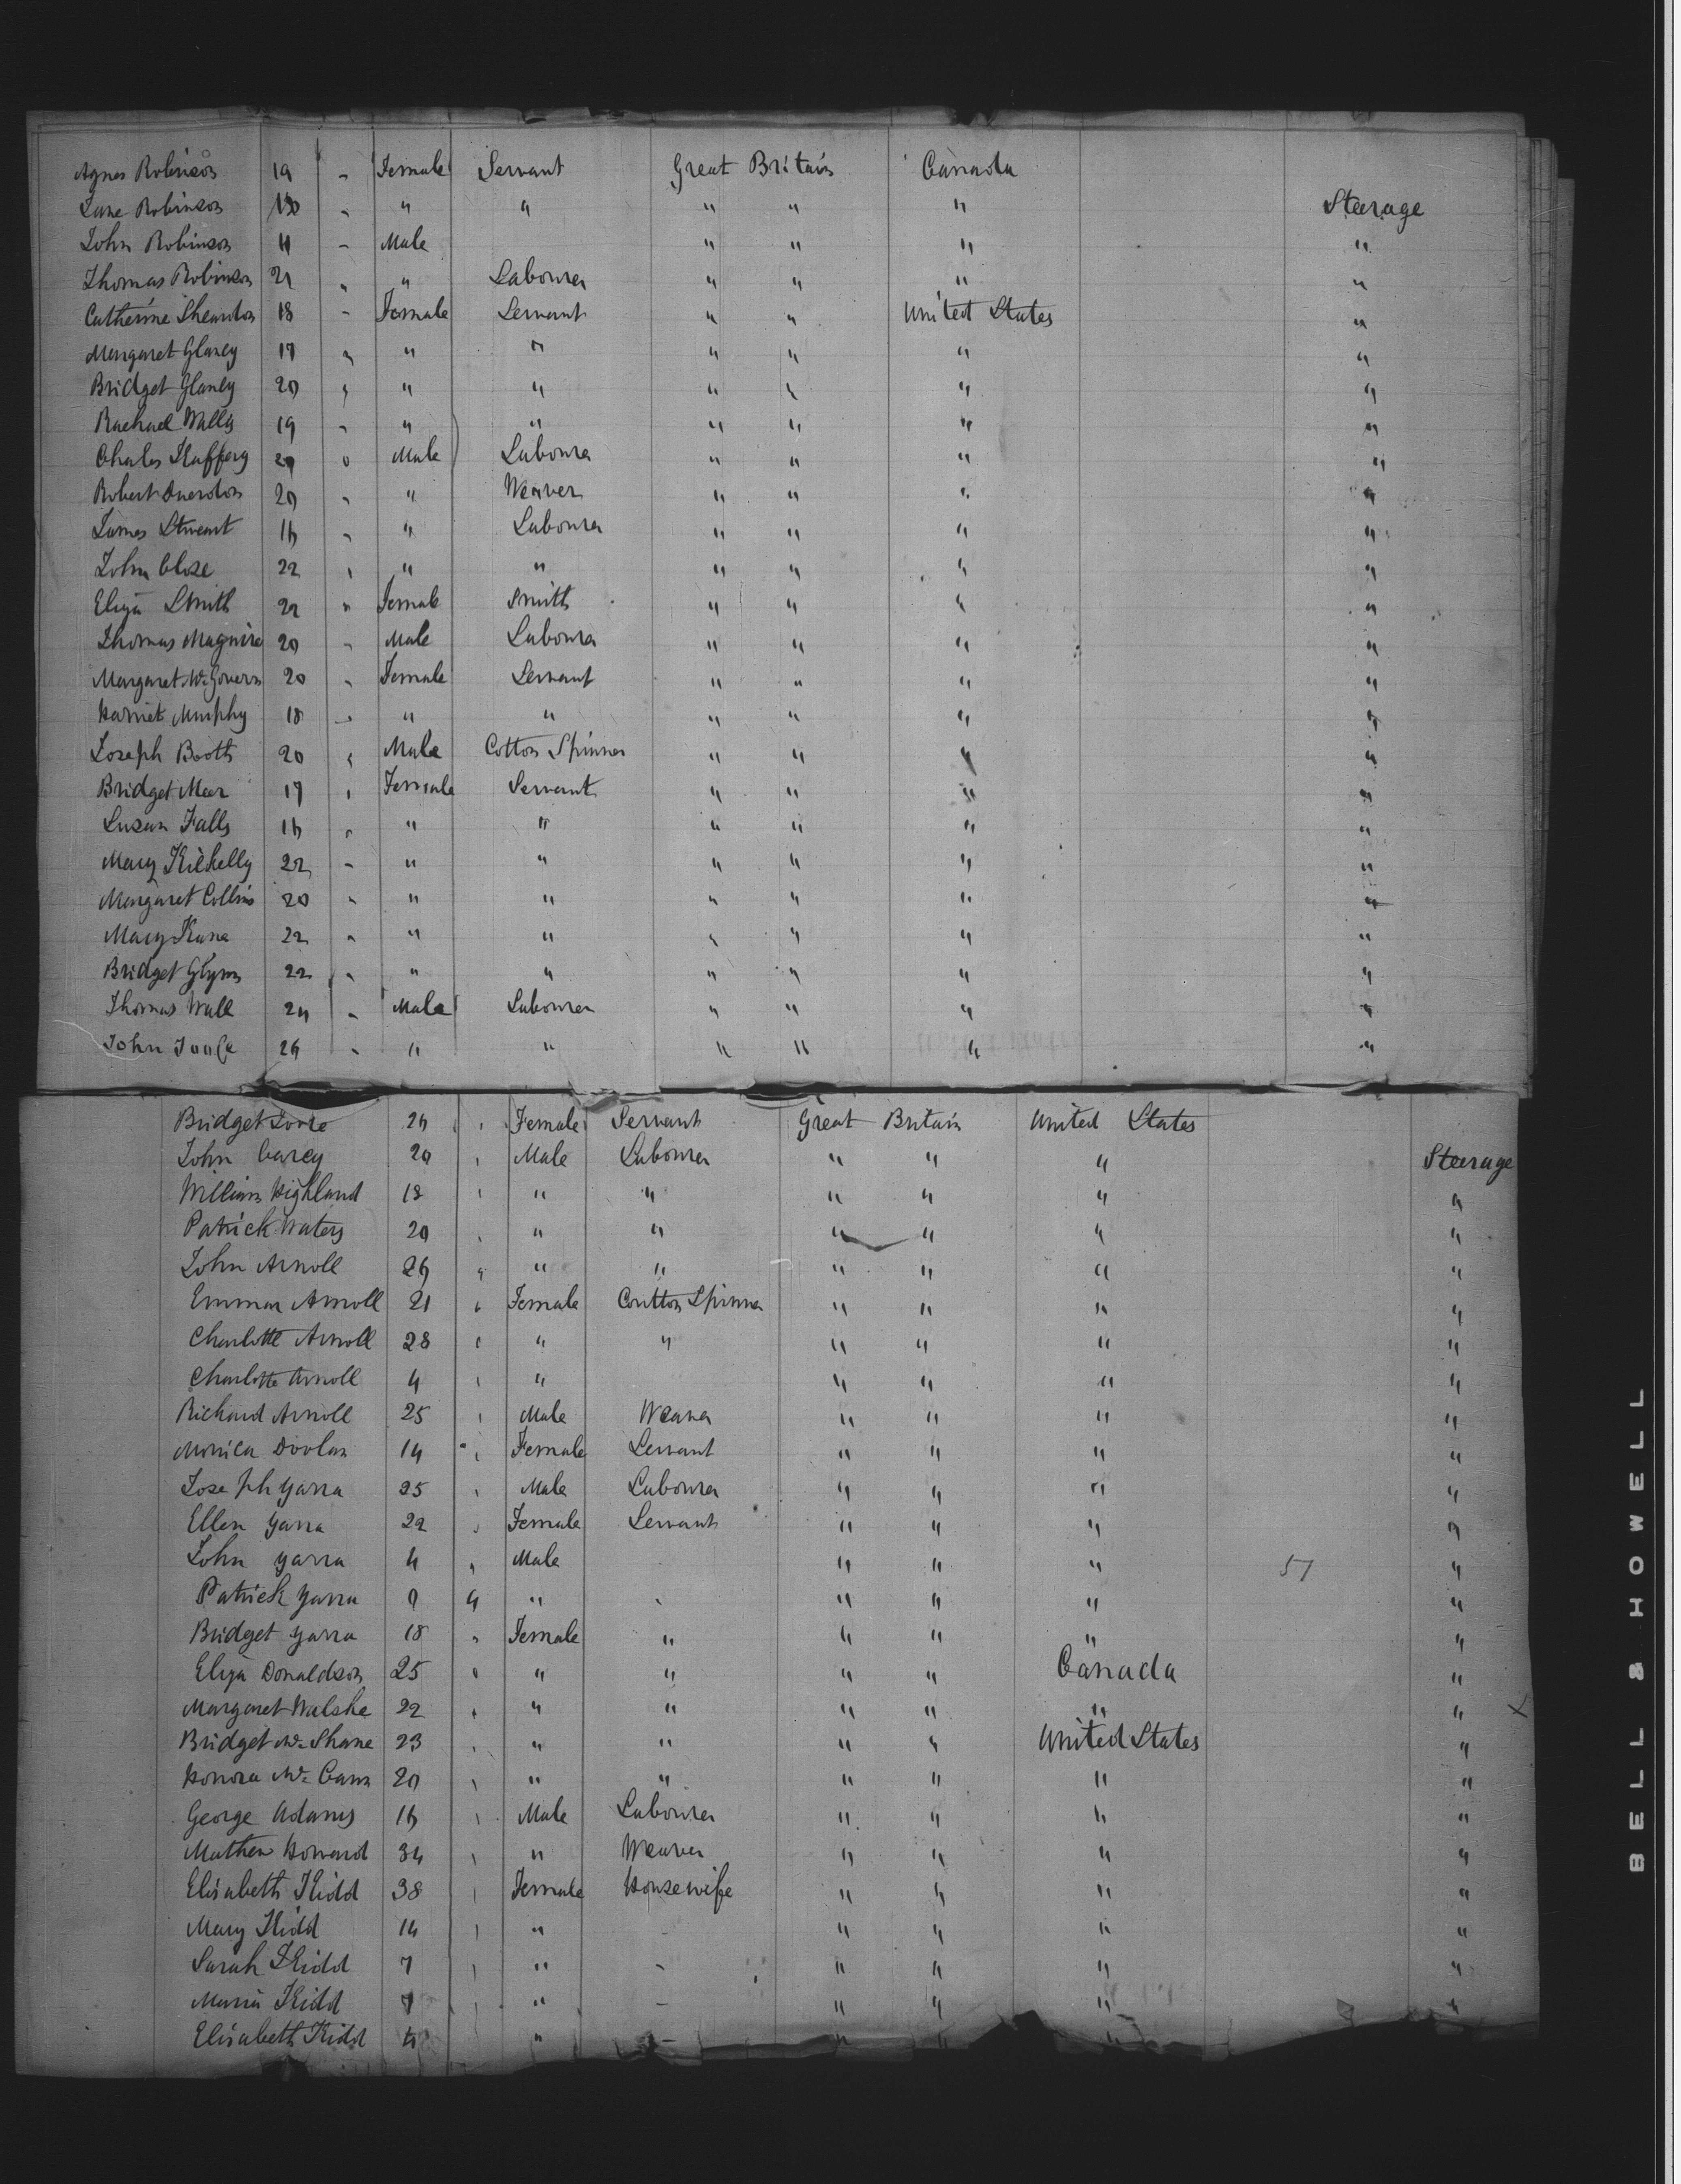 Agnes Robinson 19 " Female Servant Great Britain Canada
Jane Robinson " " " " " " Steerage
John Robinson 11 " Male " " " "
Thomas Robinson 21 " " Labourer " " " "
Catherine 18 " Female Servant " " United States "
Margaret Glancy 17 " " " " " " "
Bridget Glancy 20 " " " " " " "
Rachael Walls 19 " " " " " " "
Charles Rafferty 20 " Male Labourer " " " "
Robert 20 " " Weaver " " " "
James Stuart 16 " " Labourer " " " "
John Close 22 " " " " " " "
Eliza Smith 22 " Female Smith " " " "
Thomas Maguire 20 " Male Labourer " " " "
Margaret McGovern 20 " Female Servant " " " "
Harriet Murphy 18 " " " " " " "
Joseph Booth 20 " Male Cotton Spinner " " " "
Bridget Mear 17 " Female Servant " " " "
Susan Falls 16 " " " " " " "
Mary Kilkelly 22 " " " " " " "
Margaret Collins 20 " " " " " " "
Mary Kane 22 " " " " " " "
Bridget Glynn 22 " " " " " " "
Thomas Wall 24 " Male Labourer " " " "
John Toole 26 " " " " " " "
Bridget Toole 26 " Female Servant Great Britain United States
John Carey 20 " Male Labourer " " " Steerage
William Highland 18 " " " " " " "
Patrick Waters 20 " " " " " " "
John Arnoll 26 " " " " " " "
Emma Arnoll 21 " Female Coutton Spinner " " " "
Charlotte Arnoll 28 " " " " " " "
Charlotte Arnoll 4 " " " " " "
Richard Arnoll 25 " Male Weaver " " " "
Monica Doolan 14 " Female Servant " " " "
Joseph Yarra 25 " Male Labourer " " " "
Ellen Yarra 22 " Female Servant " " " "
John Yarra 4 " Male " " " 57 "
Patrick Yarra " " " " " "
Bridget Yarra 18 " Female " " " " "
Eliza Donaldson 25 " " " " " Canada "
Margaret Walshe 22 " " " " " " " X
Bridget McShane 23 " " " " " United States "
Honora McCann 20 " " " " " " "
George Adams 16 " Male Labourer " " " "
Mathew Howard 34 " " Weaver " " " "
Elisabeth Kidd 38 " Female Housewife " " " "
Mary Kidd 14 " " - " " " "
Sarah Kidd 7 " " - " " " "
Maria Kidd 7 " " - " " " "
Elisabeth Kidd 4 " - " " "
BELL & HOWELL